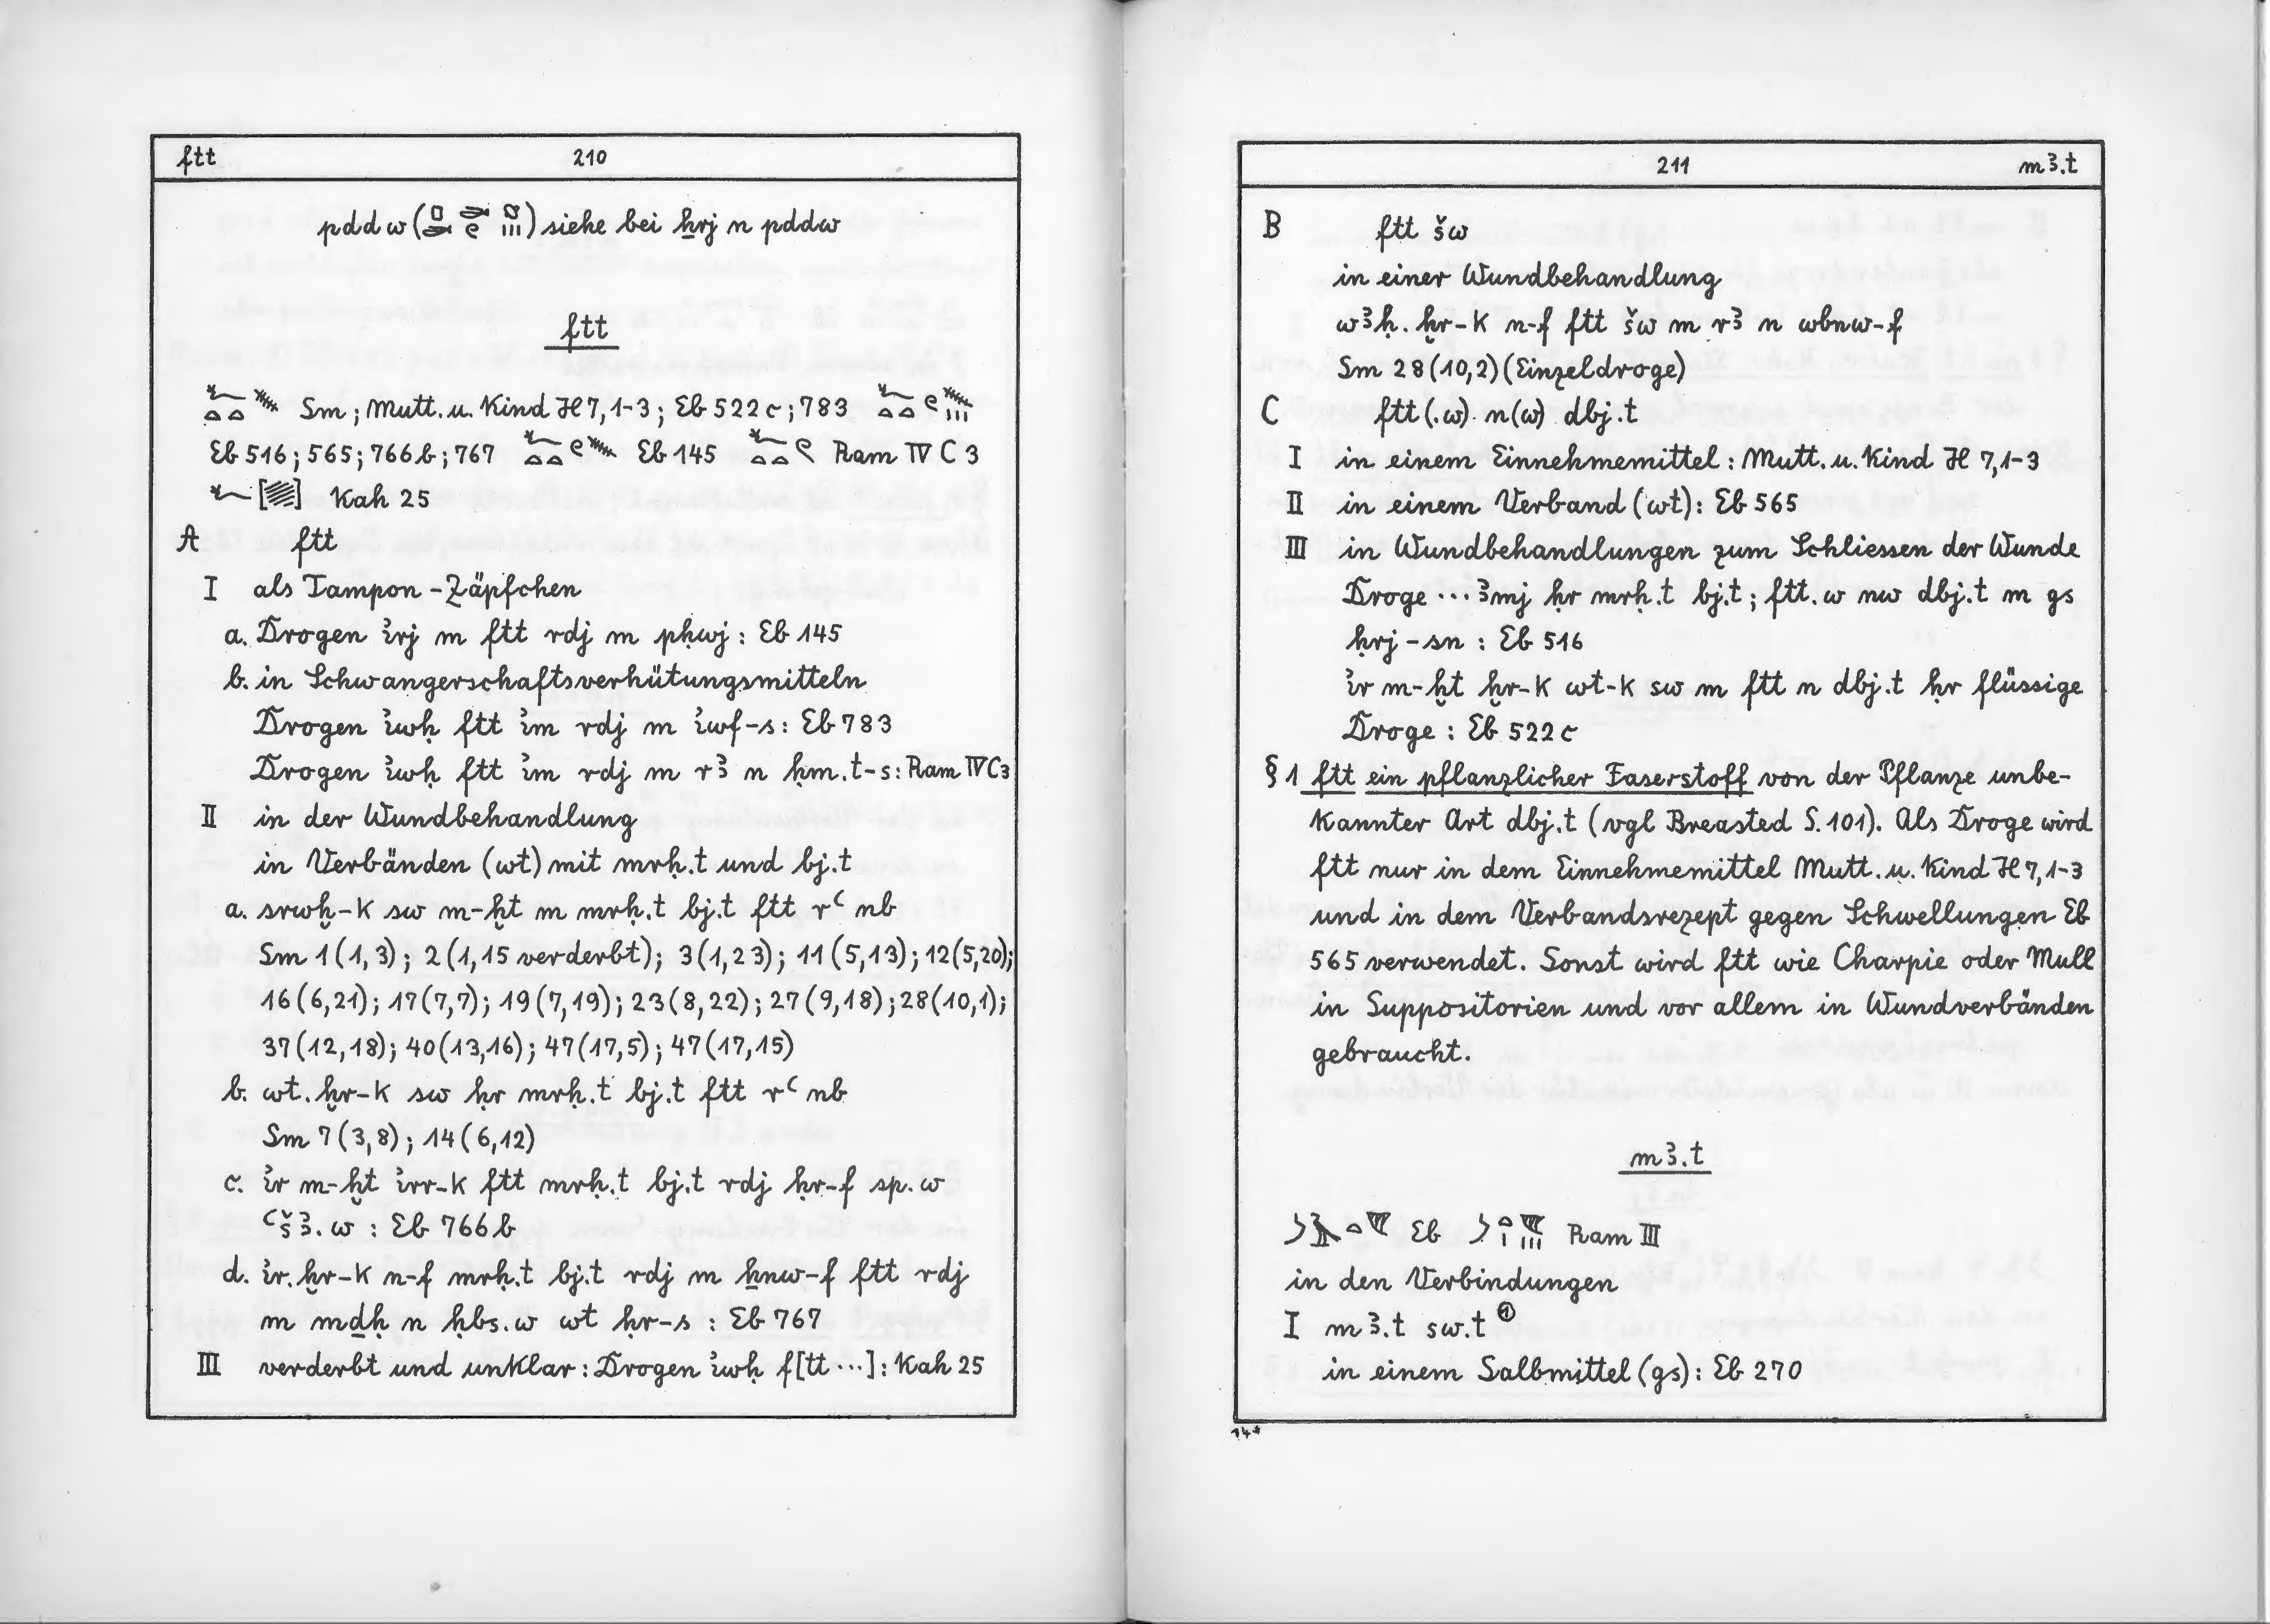 ftt 210
pddw (𓊪𓂧 𓂧𓏲 𓈒𓏥) siehe bei ẖrj n pddw
ftt
Sm; Mutt. u. Kind H 7,1-3; Eb 522 c; 783
Eb 516; 565; 766 b; 767 Eb 145 Ram IV C 3
Kah 25
A ftt
I als Tampon-Zäpfchen
a. Drogen i҆rj m ftt rdj m pḥwj: Eb 145
b. in Schwangerschaftsverhütungsmitteln
Drogen i҆wḥ ftt i҆m rdj m i҆wf-s: Eb 783
Drogen i҆wḥ ftt i҆m rdj m rꜣ n ḥm.t-s: Ram IV C3
II in der Wundbehandlung
in Verbänden (wt) mit mrḥ.t und bj.t
a. srwḫ-k sw m-ḫt m mrḥ.t bj.t ftt rꜥ nb
Sm 1 (1,3); 2 (1,15 verderbt); 3 (1,23); 11 (5,13); 12 (5,20);
16 (6,21); 17 (7,7); 19 (7,19); 23 (8,22); 27 (9,18); 28 (10,1);
37 (12,18); 40 (13,16); 47 (17,5); 47 (17,15)
b. wt.ḫr-k sw ḥr mrḥ.t bj.t ftt rꜥ nb
Sm 7 (3,8); 14 (6,12)
c. i҆r m-ḫt i҆rr-k ftt mrḥ.t bj.t rdj ḥr-f sp.w
ꜥšꜣ.w: Eb 766 b
d. i҆r.ḫr-k n-f mrḥ.t bj.t rdj m ẖnw-f ftt rdj
m mḏḥ n ḥbs.w wt ḥr-s: Eb 767
III verderbt und unklar: Drogen i҆wḥ f[tt ...]: Kah 25
211 mꜣ.t
B ftt šw
in einer Wundbehandlung
wꜣḥ.ḫr-k n-f ftt šw m rꜣ n wbnw-f
Sm 28 (10,2) (Einzeldroge)
C ftt(.w) n(w) dbj.t
I in einem Einnehmemittel: Mutt. u. Kind H 7,1-3
II in einem Verband (wt): Eb 565
III in Wundbehandlungen zum Schliessen der Wunde
Droge ... ꜣmj ḥr mrḥ.t bj.t; ftt.w nw dbj.t m gs
ḥrj-sn: Eb 516
i҆r m-ḫt ḫr-k wt-k sw m ftt n dbj.t ḥr flüssige
Droge: Eb 522 c
§ 1 ftt ein pflanzlicher Faserstoff von der Pflanze unbe-
kannter Art dbj.t (vgl Breasted S. 101). Als Droge wird
ftt nur in dem Einnehmemittel Mutt. u. Kind H 7,1-3
und in dem Verbandsrezept gegen Schwellungen Eb
565 verwendet. Sonst wird ftt wie Charpie oder Mull
in Suppositorien und vor allem in Wundverbänden
gebraucht.
mꜣ.t
Eb Ram III
in den Verbindungen
I mꜣ.t sw.t ①
in einem Salbmittel (gs): Eb 270
14*